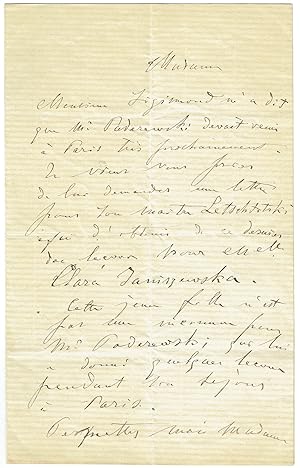 Madame
Monsieur Sigismond m'a dit
que Mr Paderewski devait venir
à Paris très prochainement.
Je viens vous prier
de lui demander une lettre
pour son maître Letschititski
afin d'obtenir de ce dernier
des leçons pour Melle
Clara Janiszewska.
Cette jeune fille n'est
pas une inconnue pour
Mr Paderewski qui lui
a donné quelques leçons
pendant son séjour
à Paris.
Permettez moi Madame